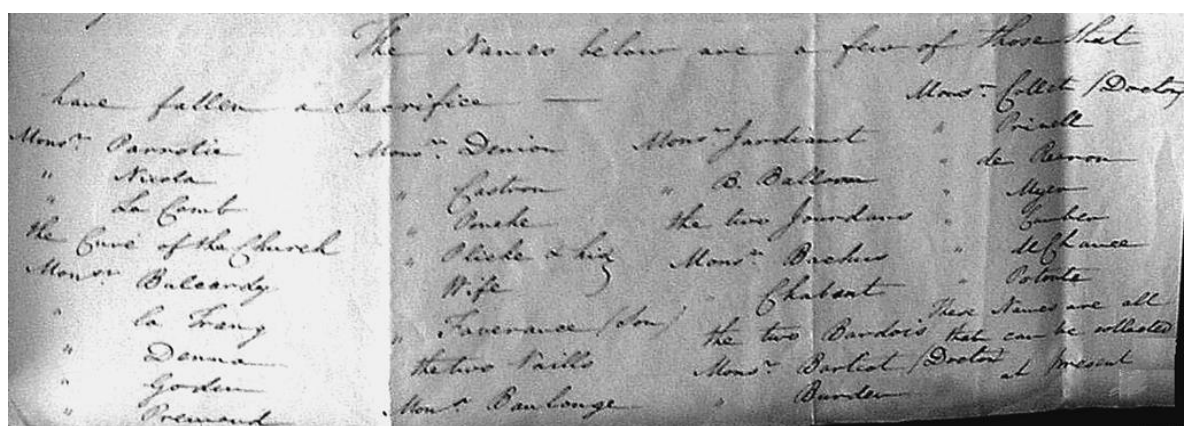 The Names below are a few of those that
have fallen a Sacrifice —
Monsr. Parrotie
" Nicola
" La Comb
the Curé of the Church
Monsr. Balcardy
" la Frang
" Denma
" Godin
" Premond
Monsr. Denion
" Castron
" Pouche
" Plicke & his
Wife
" Faverance (Son)
the two Vaills
Monsr. Baulonge
Monsr. Jardiant
" B. Balloon
the two Jourdans
Monsr. Bachus
" Chabant
the two Bardois
Monsr. Bartist (Doctor)
" Burden
Monsr. Collet (Doctor)
" Prinell
" de Reenon
" Myer
" Camber
" McChance
" Potonte
These Names are all
that can be collected
at present